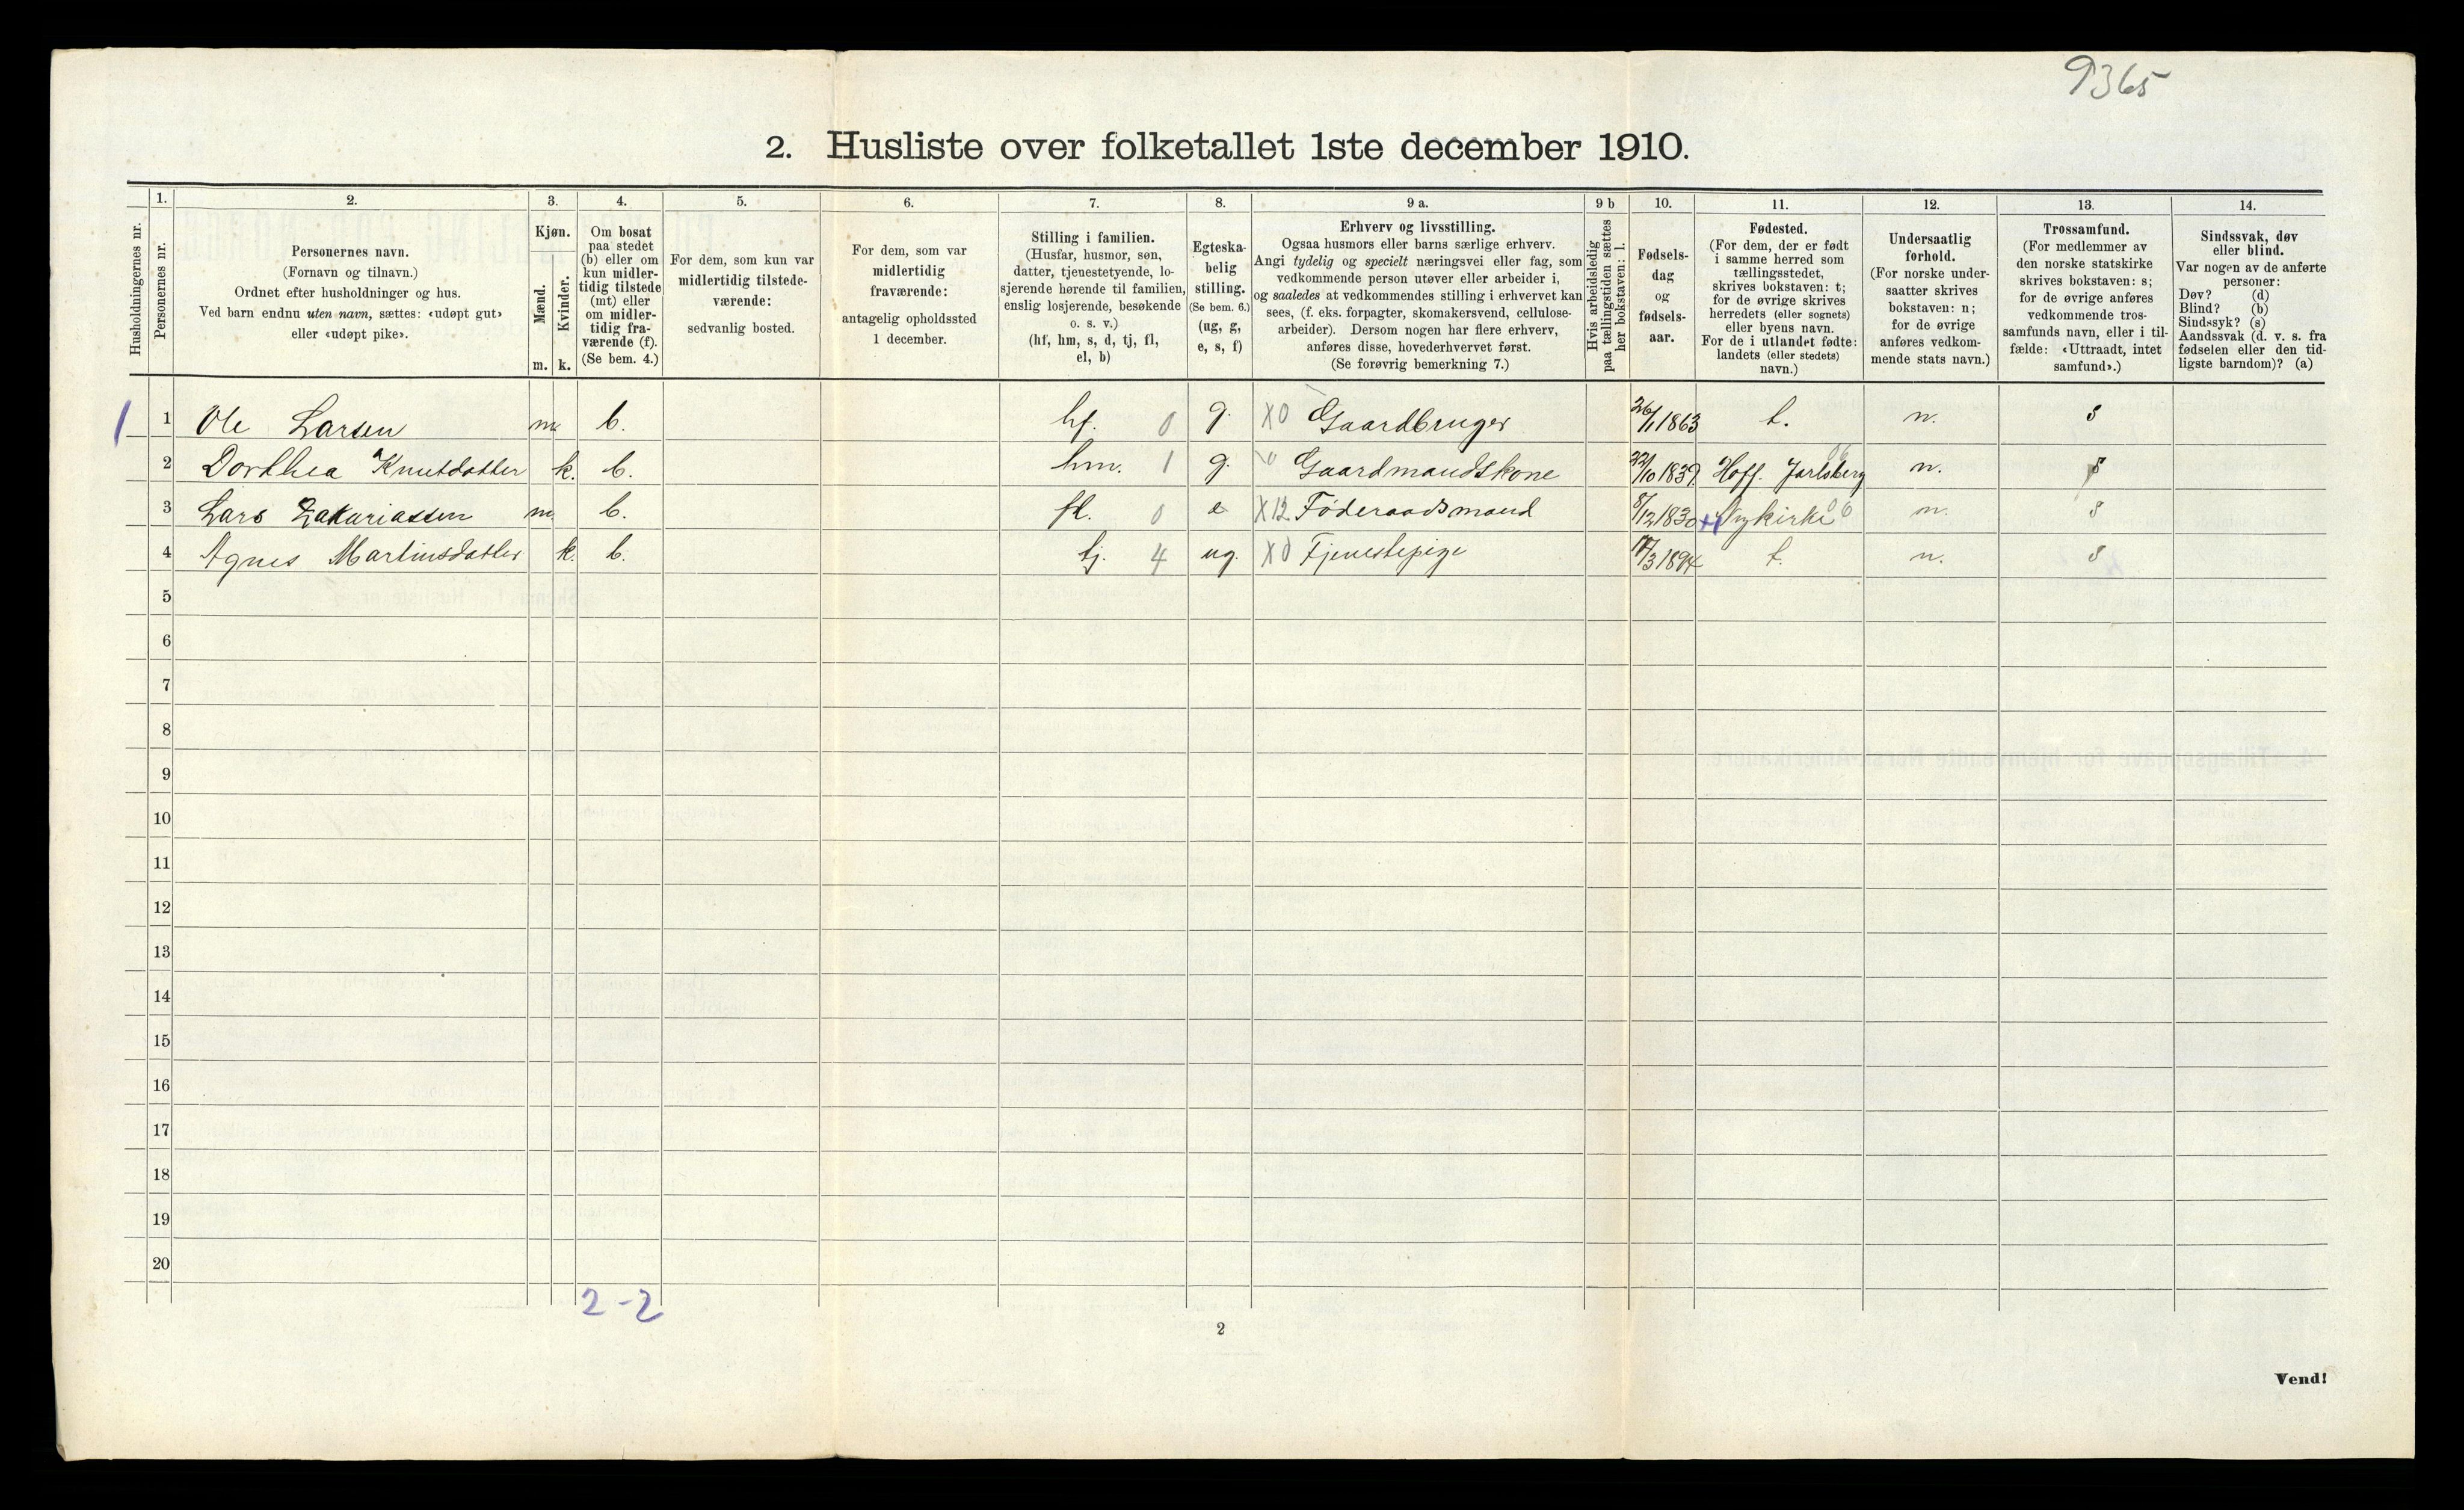 9365
2. Husliste over folketallet 1ste december 1910.
Husholdningernes nr.
1.
Personernes nr.
2.
Personernes navn.
(Fornavn og tilnavn.)
Ordnet efter husholdninger og hus.
Ved barn endnu uten navn, sættes: «udøpt gut»
eller «udøpt pike».
3.
Kjøn.
Mænd.
Kvinder.
m. k.
4.
Om bosat
paa stedet
(b) eller om
kun midler-
tidig tilstede
(mt) eller
om midler-
tidig fra-
værende (f).
(Se bem. 4.)
5.
For dem, som kun var
midlertidig tilstede-
værende:
sedvanlig bosted.
6.
For dem, som var
midlertidig
fraværende:
antagelig opholdssted
1 december.
7.
Stilling i familien.
(Husfar, husmor, søn,
datter, tjenestetyende, lo-
sjerende hørende til familien,
enslig losjerende, besøkende
o. s. v.)
(hf, hm, s, d, tj, fl,
el, b)
8.
Egteska-
belig
stilling.
(Se bem. 6.)
(ug, g,
e, s, f)
9 a.
Erhverv og livsstilling.
Ogsaa husmors eller barns særlige erhverv.
Angi tydelig og specielt næringsvei eller fag, som
vedkommende person utøver eller arbeider i,
og saaledes at vedkommendes stilling i erhvervet kan
sees, (f. eks. forpagter, skomakersvend, cellulose-
arbeider). Dersom nogen har flere erhverv,
anføres disse, hovederhvervet først.
(Se forøvrig bemerkning 7.)
9 b
Hvis arbeidsledig
paa tællingstiden sættes
her bokstaven: l.
10.
Fødsels-
dag
og
fødsels-
aar.
11.
Fødested.
(For dem, der er født
i samme herred som
tællingsstedet,
skrives bokstaven: t;
for de øvrige skrives
herredets (eller sognets)
eller byens navn.
For de i utlandet fødte:
landets (eller stedets)
navn.)
12.
Undersaatlig
forhold.
(For norske under-
saatter skrives
bokstaven: n;
for de øvrige
anføres vedkom-
mende stats navn.)
13.
Trossamfund.
(For medlemmer av
den norske statskirke
skrives bokstaven: s;
for de øvrige anføres
vedkommende tros-
samfunds navn, eller i til-
fælde: «Uttraadt, intet
samfund».)
14.
Sindssvak, døv
eller blind.
Var nogen av de anførte
personer:
Døv? (d)
Blind? (b)
Sindssyk? (s)
Aandssvak (d. v. s. fra
fødselen eller den tid-
ligste barndom)? (a)
1 1 Ole Larsen m b. hf. 0 g. X0 Gaardbruger 26/1 1863 t. n. s
2 Dorthea Knutdatter k. b. hm. 1 g. Gaardmandskone 22/10 1839 Hoff. Jarlsberg n. s
3 Lars Zakariassen m. b. fl. 0 e X12 Føderaadsmand 8/12 1830 Nykirke n. s
4 Agnes Martinsdatter k. b. tj. 4 ug. X0 Tjenestepige 1894 t. n. s
5
6
7
8
9
10
11
12
13
14
15
16
17
18
19
20
2-2
2
Vend!